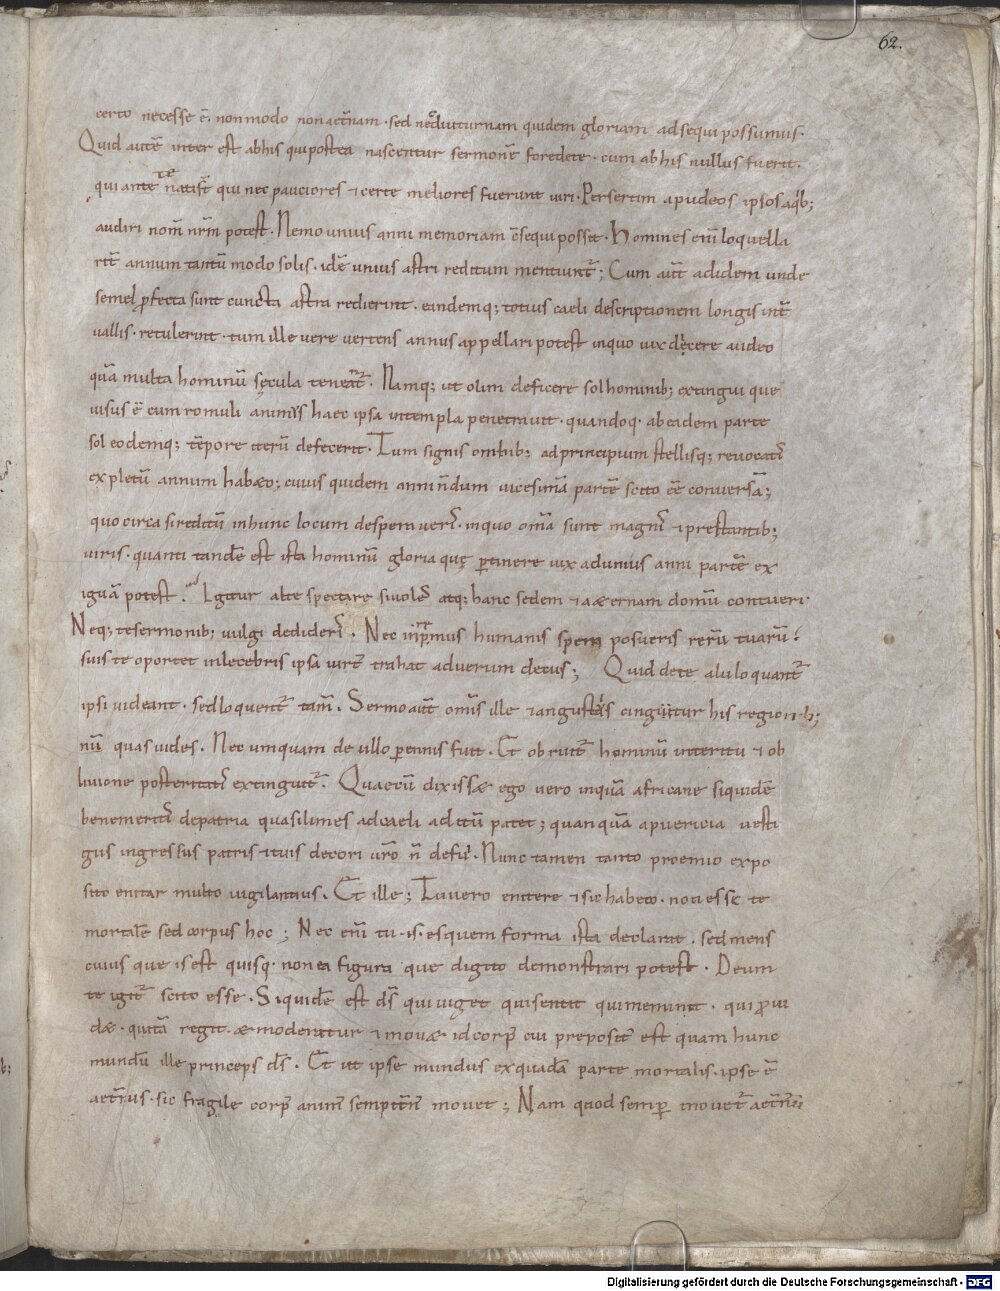 62.
certo necesse ē. non modo non aet̄nam · sed nec diuturnam quidem gloriam adsequi possumus ·
Quid autē inter est abhis qui postea nascentur sermonē foredete · cum ab his nullus fuerit .
qui ante te nati s̄t qui nec pauciores & certe meliores fuerunt uiri · Persertim apud eos ipsos a qb;
audiri nom̄ nr̄m potest · Nemo unius anni memoriam c̄sequi possit · Homines eni loquella
rit̄ annum tantū modo solis · idē unius astri reditum mentiunt̄ ; Cum aūt ad idem unde
semel profecta sunt cuncta astra redierint · eandemq; totius caeli descriptionem longis int̄
uallis · retulerint · tum ille uere uertens annus appellari potest inquo uix dicere audeo
quā multa hominū sęcula teneant̄ . Namq; ut olim deficere sol hominib; extingui que
uisus ē cum romuli animus haec ipsa intempla penetrauit · quandoq · ab eadem parte
sol eodemq; tēpore iterū defecerit · Tum signis omnib; ad principium stellisq; reuocatis
expletū annum habæo; cuius quidem anni nondum uicesimā partē scito eē conuersā;
quo circa si reditū in hunc locum desperaueris · inquo om̄a sunt magnis & prestantib;
uiris · quanti tandē est ista hominū gloria quę p̱tinere uix ad unius anni partē ex
iguā potest . Igitur alte spectare si uoles atq; hanc sedem & æternam domū contueri ·
Neq; te sermonib; uulgi dedideris . Nec in p̄mus humanis spem posueris rerū tuarū .
suis te oportet inlecebris ipsa uirt̄ trahat ad uerum decus ; Quid de te alii loquant̄
ipsi uideant · sed loquent̄ tam̄ . Sermo aūt om̄is ille & angustiis cingitur his region-b;
nū quas uides . Nec umquam de ullo p̱ennis fuit . Et obruit̄ hominū interitu & ob
liuione posteritatis extinguit̄ . Quae cū dixissæ ego uero inquā africane siquidē
benemeritis de patria quasi limes ad caeli aditū patet ; quanquā a puericia uesti
giis ingressus patris & tuis decori uro n̄ defui · Nunc tamen tanto proemio expo
sito enitar multo uigilantius . Et ille ; Tu uero enitere & sic habeto · non esse te
mortalē sed corpus hoc ; Nec eni tu · is · es quem forma ista declarat . sed mens
cuius que is est quisq · non ea figura que digito demonstrari potest . Deum
te igit̄ scito esse . Siquidē est d̄s qui uiget qui sentit qui meminit · qui p̱ui
dæ · qui tā regit · æ moderatur & mouæ id corp̄ cui preposit̄ est quam hunc
mundū ille princeps d̄s . Et ut ipse mundus ex quadā parte mortalis · ipse ē
aet̄nus · sic fragile corp̄ anim̄ sempit̄n̄ mouet ; Nam quod semp̱ mouet̄ aet̄nū
Digitalisierung gefördert durch die Deutsche Forschungsgemeinschaft - DFG